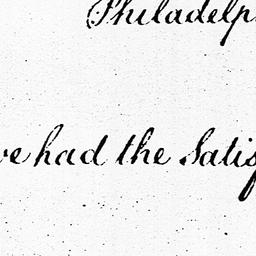 Philadelp
ve had the Satis